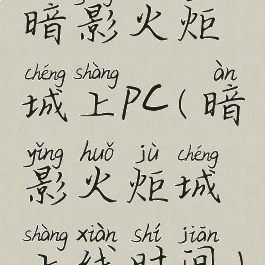 暗影火炬
chéng shàng àn
城上PC(暗
yǐng huǒ jù chéng
影火炬城
shàng xiàn shí jiān
上线时间)